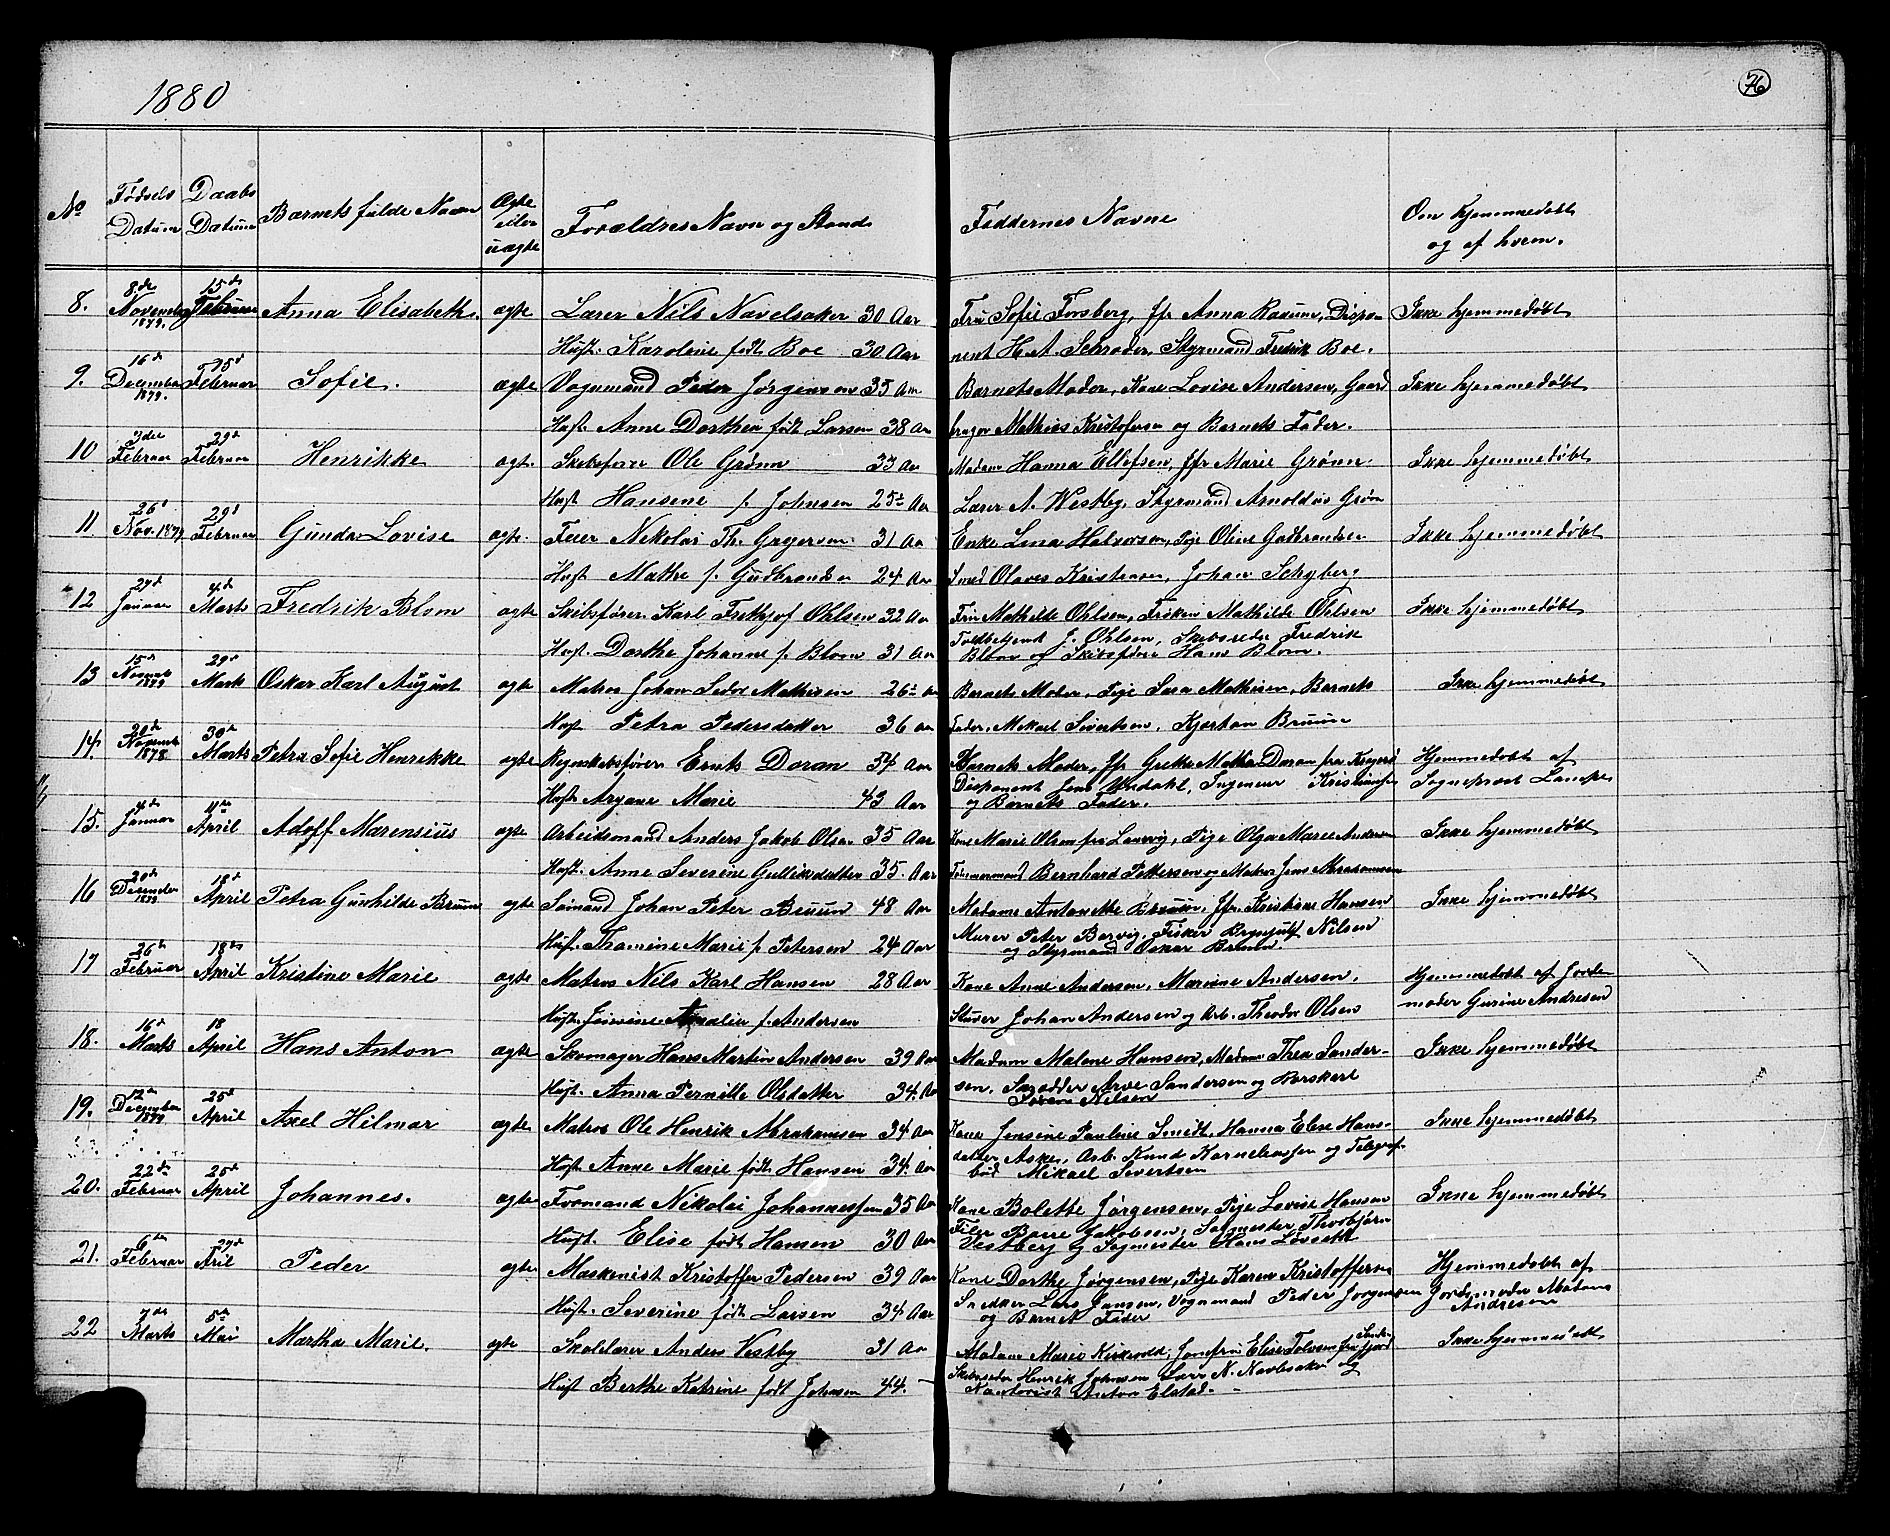 1880
76
No
Fødsels Datum
Daabs Datum
Barnets fulde Navn
Ægte eller uægte
Forældres Navn og Stand
Faddernes Navne
Om hjemmedøbt og af hvem.
8. 8de November 1879. 15de Februar Anna Elisabeth. ægte Lærer Nils Navelsaker 30 Aar Fru Sofie Forsberg, Jfr Anna Ravum, Dispo- Ikke hjemmedøbt
Hust. Karoline født Boe 30 Aar nent H. A. Schrøder, Styrmand Fredrik Boe.
9. 16de December 1879. 25d Februar Sofie. ægte Vognmand Peder Jørgensen 35 Aar Barnets Moder, Kone Lovise Andersen, Gaard Ikke hjemmedøbt
Hust. Anne Dorthea født Larsen 38 Aar bruger Mathias Kristofersen og Barnets Fader.
10 3die Februar 29d Februar Henrikke ægt. Skibsfører Ole Grönn 33 Aar Madam Hanna Ellefsen, Jfr Marie Grønn Ikke hjemmedøbt
Hust Hansine f. Johnsen 25 Aar Lærer A. Westby, Styrmand Arnoldus Grøn
11 26d Nov. 1879 29d Februar Gunda Lovise ægte. Feier Nikolai Th. Gregersen 31 Aar Enke Lina Halvorsen, Pige Oline Gudbrandsen Ikke hjemmedøbt
Hust Mathe f. Gudbrandsen 24 Aar Smed Olaves Kristensen, Johan Schyberg
12 27d Januar 4de Marts Fredrik Blom ægte Skibsfører Karl Frithjof Ohlsen 32 Aar Fru Mathilde Ohlsen, Frøken Mathilde Ohlsen Ikke hjemmedøbt
Hust. Dorthe Johanne f. Blom 31 Aar Toldbetjent J. Ohlsen, Skibsreder Fredrik
Blom og Skibsfører Hans Blom.
13 15d Novemb 1879 29d Mark Oskar Karl August ægte Matros Johan Mathisen 26 Aar Barnets Moder, Pige Sara Mathisen, Barnets Ikke hjemmedøbt
Hust Petra Pedersdatter 36 Aar Fader, Mekael Sivertsen, Bruun
14. 20de Novemb 1878 30d Marts Petra Sofie Henrikke ægte Regnskabsfører Doran 54 Aar Barnets Moder, Jfr Grethe Mathea Doran fra Kragerø Hjemmedøbt af
Hust. Marie 43 Aar Disponent Jens Ingeniør Kristiansen Sogneprest Lampe
og Barnets Fader.
15. 4de Januar 11te April Adolf Marensius ægte Arbeidsmand Anders Jakob Olsen 35 Aar Kone Marie Olsen fra Laurvig, Pige Olga Marie Andersen Ikke hjemmedøbt
Hust. Anne Severine Gulliksdatter 35. Aar Tømmermand Bernhard Pettersen og Matros Jens Abrahamsen
16 20de December 1879 18de April Petra Gunhilde Bruun ægte Sømand Johan Peter Bruun 48 Aar Madame Antonette Bruun, Jfr. Kristine Hansen Ikke hjemmedøbt
Hust. Thomine Marie f. Petersen 24 Aar Murer Peter Borvig, Fisker Brynjulf Nilsen
og Styrmand Oskar Bruun
17 26de Februar 18de April Kristine Marie ægte Matros Nils Karl Hansen 28 Aar Kone Anne Andersen, Mariane Andersen. Hjemmedøbt af Jorde-
Hust. Amalia f. Andersen Stuver Johan Andersen og Arb. Theodor Olsen moder Gurine Andresen
18. 16d Marts 18 April Hans Anton ægte Skomager Hans Martin Andersen 39 Aar Madam Malene Hansen, Madam Thea Sander- Ikke hjemmedøbt
Hust. Anna Pernille Olsdatter 34. Aar sen, Arve Sandersen og
Nilsen
19. 12de December 1879 25d April Axel Hilmar ægte Matros Ole Henrik Abrahamsen 34 Aar Kone Jensine Pauline Smidt, Hanna Elise Hans- Ikke hjemmedøbt
Hust. Anne Marie født Hansen 34. Aar datter Aske, Arb. Knud Korneliussen og Telegraf-
bud Mikael Severtsen
20. 22de Februar 25d April Johannes. ægte Formand Nikolai Johannessen 35 Aar Kone Bolette Jørgensen, Pige Lovise Hansen Ikke hjemmedøbt
Hust. Elise født Hansen 30 Aar Jakobsen, Sagmester Thorbjørn
Vestberg og Sagmester Hans Løvseth
21. 6te Februar 27d April Peder ægte Maskenist Kristoffer Pedersen 39 Aar Kone Dorthe Jørgensen, Pige Karen Kristoffersen Hjemmedøbt af
Hust. Severine født Larsen 34 Aar Snedker Lars Jansen, Vognmand Peder Jørgensen Jordemoder Madam
og Barnets Fader Andresen
22 7de Marts 5te Mai Martha Marie. ægte Skolelærer Anders Vestby 31 Aar Madam Marie Kirkevold, Jomfru Elise Tolvsen fra Sandefjord Ikke hjemmedøbt
Hust Berthe Katrine født Johnsen 44. Skibsreder Henrik Johnsen Lærer N. Navelsaker og
Anton Elstad.